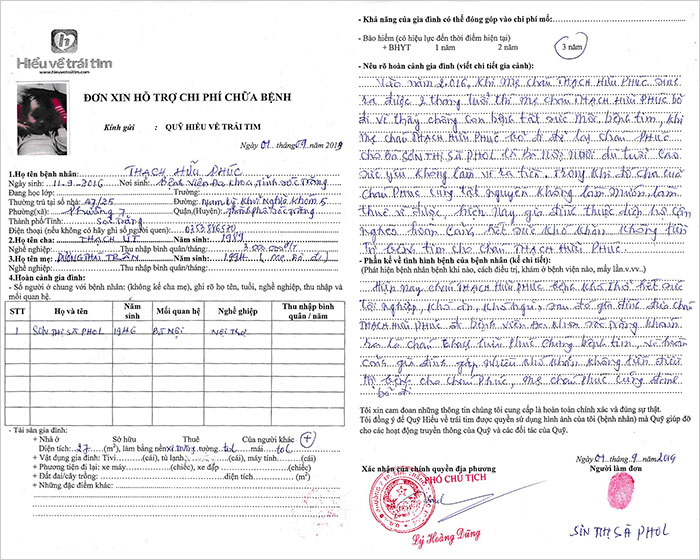 Hiểu về trái tim
www.hieuvetraitim.com
ĐƠN XIN HỖ TRỢ CHI PHÍ CHỮA BỆNH
Kính gửi : QUỸ HIỂU VỀ TRÁI TIM
Ngày 01 tháng 09 năm 2019
1.Họ tên bệnh nhân: THẠCH HỮU PHÚC
Ngày sinh: 11-9-2016 Nơi sinh: Bệnh Viện Đa Khoa Tỉnh Sóc Trăng
Đang học lớp: Trường:
Thường trú tại số nhà: 47/25 Đường: Nam Kỳ Khởi Nghĩa, Khóm 5
Phường(xã): Phường 7 Quận,(Huyện): Thành phố Sóc Trăng
Thành phố/Tỉnh: Sóc Trăng
Điện thoại (nếu không có hãy ghi số người quen):
2.Họ tên cha: THẠCH ÚT Năm sinh: 1989
Nghề nghiệp: Thu nhập bình quân/tháng: 3.000.000
3.Họ tên mẹ: DƯƠNG THÁI TRÂN Năm sinh: 1994 (mẹ bỏ đi)
Nghề nghiệp: Thu nhập bình quân/tháng:
4.Hoàn cảnh gia đình:
- Số người ở chung với bệnh nhân: (không kể cha mẹ), ghi rõ họ tên, tuổi, nghề nghiệp, thu nhập và
mối quan hệ.
STT Họ và tên Năm sinh Mối quan hệ Nghề nghiệp Thu nhập bình quân / năm
1 SƠN THỊ SÀ PHOL 1946 Bà Nội Nội Trợ
- Tài sản gia đình:
+ Nhà ở Sở hữu Thuê Của người khác +
Diện tích: 27 (m²), làm bằng nền xi măng tường tol mái tol
+ Vật dụng gia đình: Tivi (cái), tủ lạnh (cái), máy tính (cái)
+ Phương tiện đi lại: xe máy (chiếc), xe đạp (chiếc)
+ Đất đai/cây trồng: diện tích (m²)
+ Những đặc điểm khác:
- Khả năng của gia đình có thể đóng góp vào chi phí mổ:
- Bảo hiểm (có hiệu lực đến thời điểm hiện tại)
+ BHYT 1 năm 2 năm 3 năm
- Nêu rõ hoàn cảnh gia đình (viết chi tiết gia cảnh):
Vào năm 2016. Khi Mẹ cháu THẠCH HỮU PHÚC sinh
ra được 2 tháng tuổi thì Mẹ cháu THẠCH HỮU PHÚC bỏ
đi vì thấy chồng con bệnh tật sức môi, bệnh tim, khi
Mẹ cháu THẠCH HỮU PHÚC bỏ đi để lại cháu PHÚC
cho Bà SƠN THỊ SÀ PHOL là Bà Nội. Người đã tuổi cao
sức yếu không làm ra tiền. Trong khi đó cha của
cháu PHÚC cũng tật nguyền không làm mướn làm
thuê gì được, hiện nay gia đình thuộc diện hộ cận
nghèo hoàn cảnh hết sức khó khăn không tiền
trị bệnh tim cho cháu THẠCH HỮU PHÚC.
- Phần kể về tình hình bệnh của bệnh nhân (kể chi tiết):
(Phát hiện bệnh nhân bệnh khi nào, cách điều trị, khám ở bệnh viện nào, mấy lần.v.vv..)
Hiện nay cháu THẠCH HỮU PHÚC bệnh khó thở hết sức
tội nghiệp, khó ăn, khó ngủ, sau đó gia đình đưa cháu
THẠCH HỮU PHÚC đi bệnh viện Đa Khoa Sóc Trăng khám
ra là cháu Thạch Hữu Phúc chứng bệnh tim, vì hoàn
cảnh gia đình gặp nhiều khó khăn không tiền điều
trị bệnh cho cháu Phúc, mẹ cháu Phúc cũng đành
bỏ đi
Tôi xin cam đoan những thông tin chúng tôi cung cấp là hoàn toàn chính xác và đúng sự thật.
Tôi đồng ý để Quỹ Hiểu về trái tim được quyền sử dụng hình ảnh của tôi (bệnh nhân) mà Quỹ giúp đỡ
cho các hoạt động truyền thông của Quỹ và các đối tác của Quỹ.
Ngày 01 tháng 9 năm 2019
Xác nhận của chính quyền địa phương Người làm đơn
PHÓ CHỦ TỊCH
Lý Hoàng Dũng
SƠN THỊ SÀ PHOL